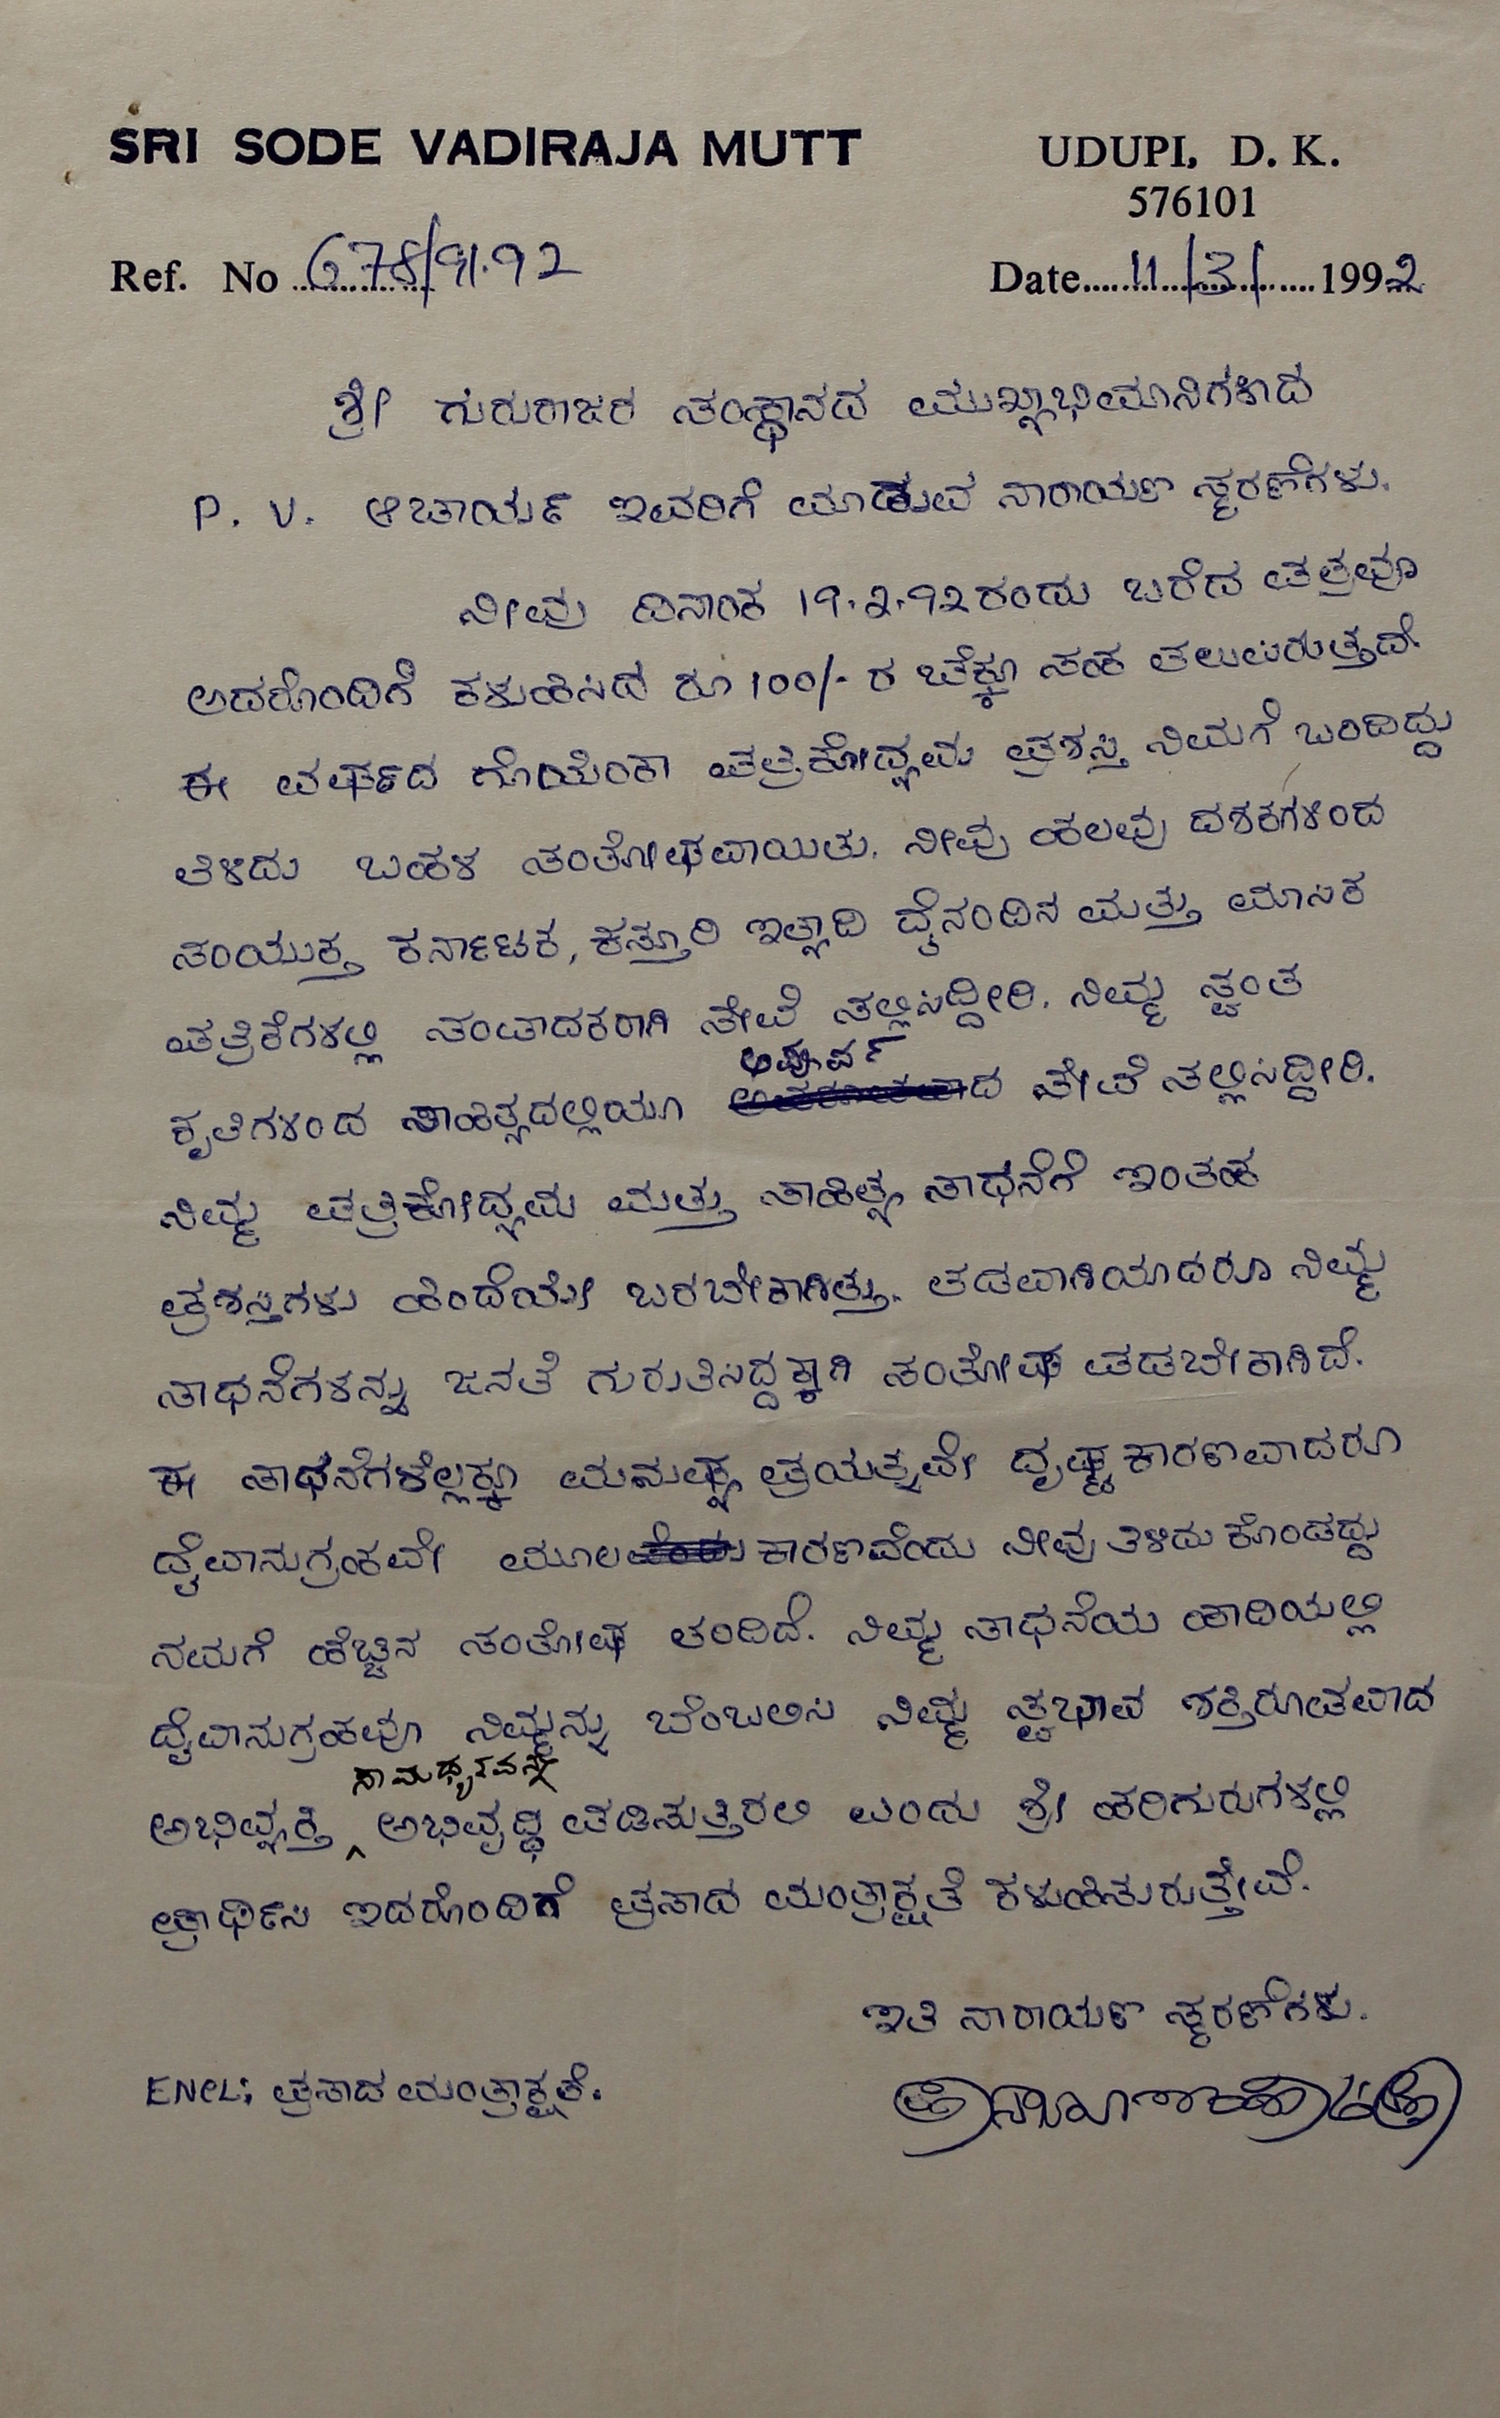 SRI SODE VADIRAJA MUTT UDUPI, D. K.
576101
Ref. No 678/91.92 Date 11/3/1992
ಶ್ರೀ ಗುರುರಾಜರ ಸಂಸ್ಥಾನದ ಮುಖ್ಯಾಭಿಮಾನಿಗಳಾದ
P. V. ಆಚಾರ್ಯ ಇವರಿಗೆ ಮಾಡುವ ನಾರಾಯಣ ಸ್ಮರಣೆಗಳು.
ನೀವು ದಿನಾಂಕ 19.2.92ರಂದು ಬರೆದ ಪತ್ರವೂ
ಅದರೊಂದಿಗೆ ಕಳುಹಿಸಿದ ರೂ 100/- ರ ಚೆಕ್ಕೂ ಸಹ ತಲುಪಿರುತ್ತದೆ.
ಈ ವರ್ಷದ ಗೊಯೆಂಕಾ ಪತ್ರಿಕೋದ್ಯಮ ಪ್ರಶಸ್ತಿ ನಿಮಗೆ ಬಂದಿದ್ದು
ತಿಳಿದು ಬಹಳ ಸಂತೋಷವಾಯಿತು. ನೀವು ಹಲವು ದಶಕಗಳಿಂದ
ಸಂಯುಕ್ತ ಕರ್ನಾಟಕ, ಕಸ್ತೂರಿ ಇತ್ಯಾದಿ ದೈನಂದಿನ ಮತ್ತು ಮಾಸಿಕ
ಪತ್ರಿಕೆಗಳಲ್ಲಿ ಸಂಪಾದಕರಾಗಿ ಸೇವೆ ಸಲ್ಲಿಸಿದ್ದೀರಿ. ನಿಮ್ಮ ಸ್ವಂತ
ಅಪೂರ್ವ
ಕೃತಿಗಳಿಂದ ಸಾಹಿತ್ಯದಲ್ಲಿಯೂ ದ ಸೇವೆ ಸಲ್ಲಿಸಿದ್ದೀರಿ.
ನಿಮ್ಮ ಪತ್ರಿಕೋದ್ಯಮ ಮತ್ತು ಸಾಹಿತ್ಯ ಸಾಧನೆಗೆ ಇಂತಹ
ಪ್ರಶಸ್ತಿಗಳು ಹಿಂದೆಯೇ ಬರಬೇಕಾಗಿತ್ತು. ತಡವಾಗಿಯಾದರೂ ನಿಮ್ಮ
ಸಾಧನೆಗಳನ್ನು ಜನತೆ ಗುರುತಿಸಿದ್ದಕ್ಕಾಗಿ ಸಂತೋಷ ಪಡಬೇಕಾಗಿದೆ.
ಈ ಸಾಧನೆಗಳೆಲ್ಲಕ್ಕೂ ಮನುಷ್ಯ ಪ್ರಯತ್ನವೇ ದೃಷ್ಟ ಕಾರಣವಾದರೂ
ದೈವಾನುಗ್ರಹವೇ ಮೂಲ ಕಾರಣವೆಂದು ನೀವು ತಿಳಿದು ಕೊಂಡದ್ದು
ನಮಗೆ ಹೆಚ್ಚಿನ ಸಂತೋಷ ತಂದಿದೆ. ನಿಮ್ಮ ಸಾಧನೆಯ ಹಾದಿಯಲ್ಲಿ
ದೈವಾನುಗ್ರಹವೂ ನಿಮ್ಮನ್ನು ಬೆಂಬಲಿಸಿ ನಿಮ್ಮ ಸ್ವಭಾವ ಶಕ್ತಿರೂಪವಾದ
ಸಾಮರ್ಥ್ಯವನ್ನು
ಅಭಿವ್ಯಕ್ತಿ ^ ಅಭಿವೃದ್ಧಿ ಪಡಿಸುತ್ತಿರಲಿ ಎಂದು ಶ್ರೀ ಹರಿಗುರುಗಳಲ್ಲಿ
ಪ್ರಾರ್ಥಿಸಿ ಇದರೊಂದಿಗೆ ಪ್ರಸಾದ ಮಂತ್ರಾಕ್ಷತೆ ಕಳುಹಿಸಿರುತ್ತೇವೆ.
ಇತಿ ನಾರಾಯಣ ಸ್ಮರಣೆಗಳು.
ENCL; ಪ್ರಸಾದ ಮಂತ್ರಾಕ್ಷತೆ.